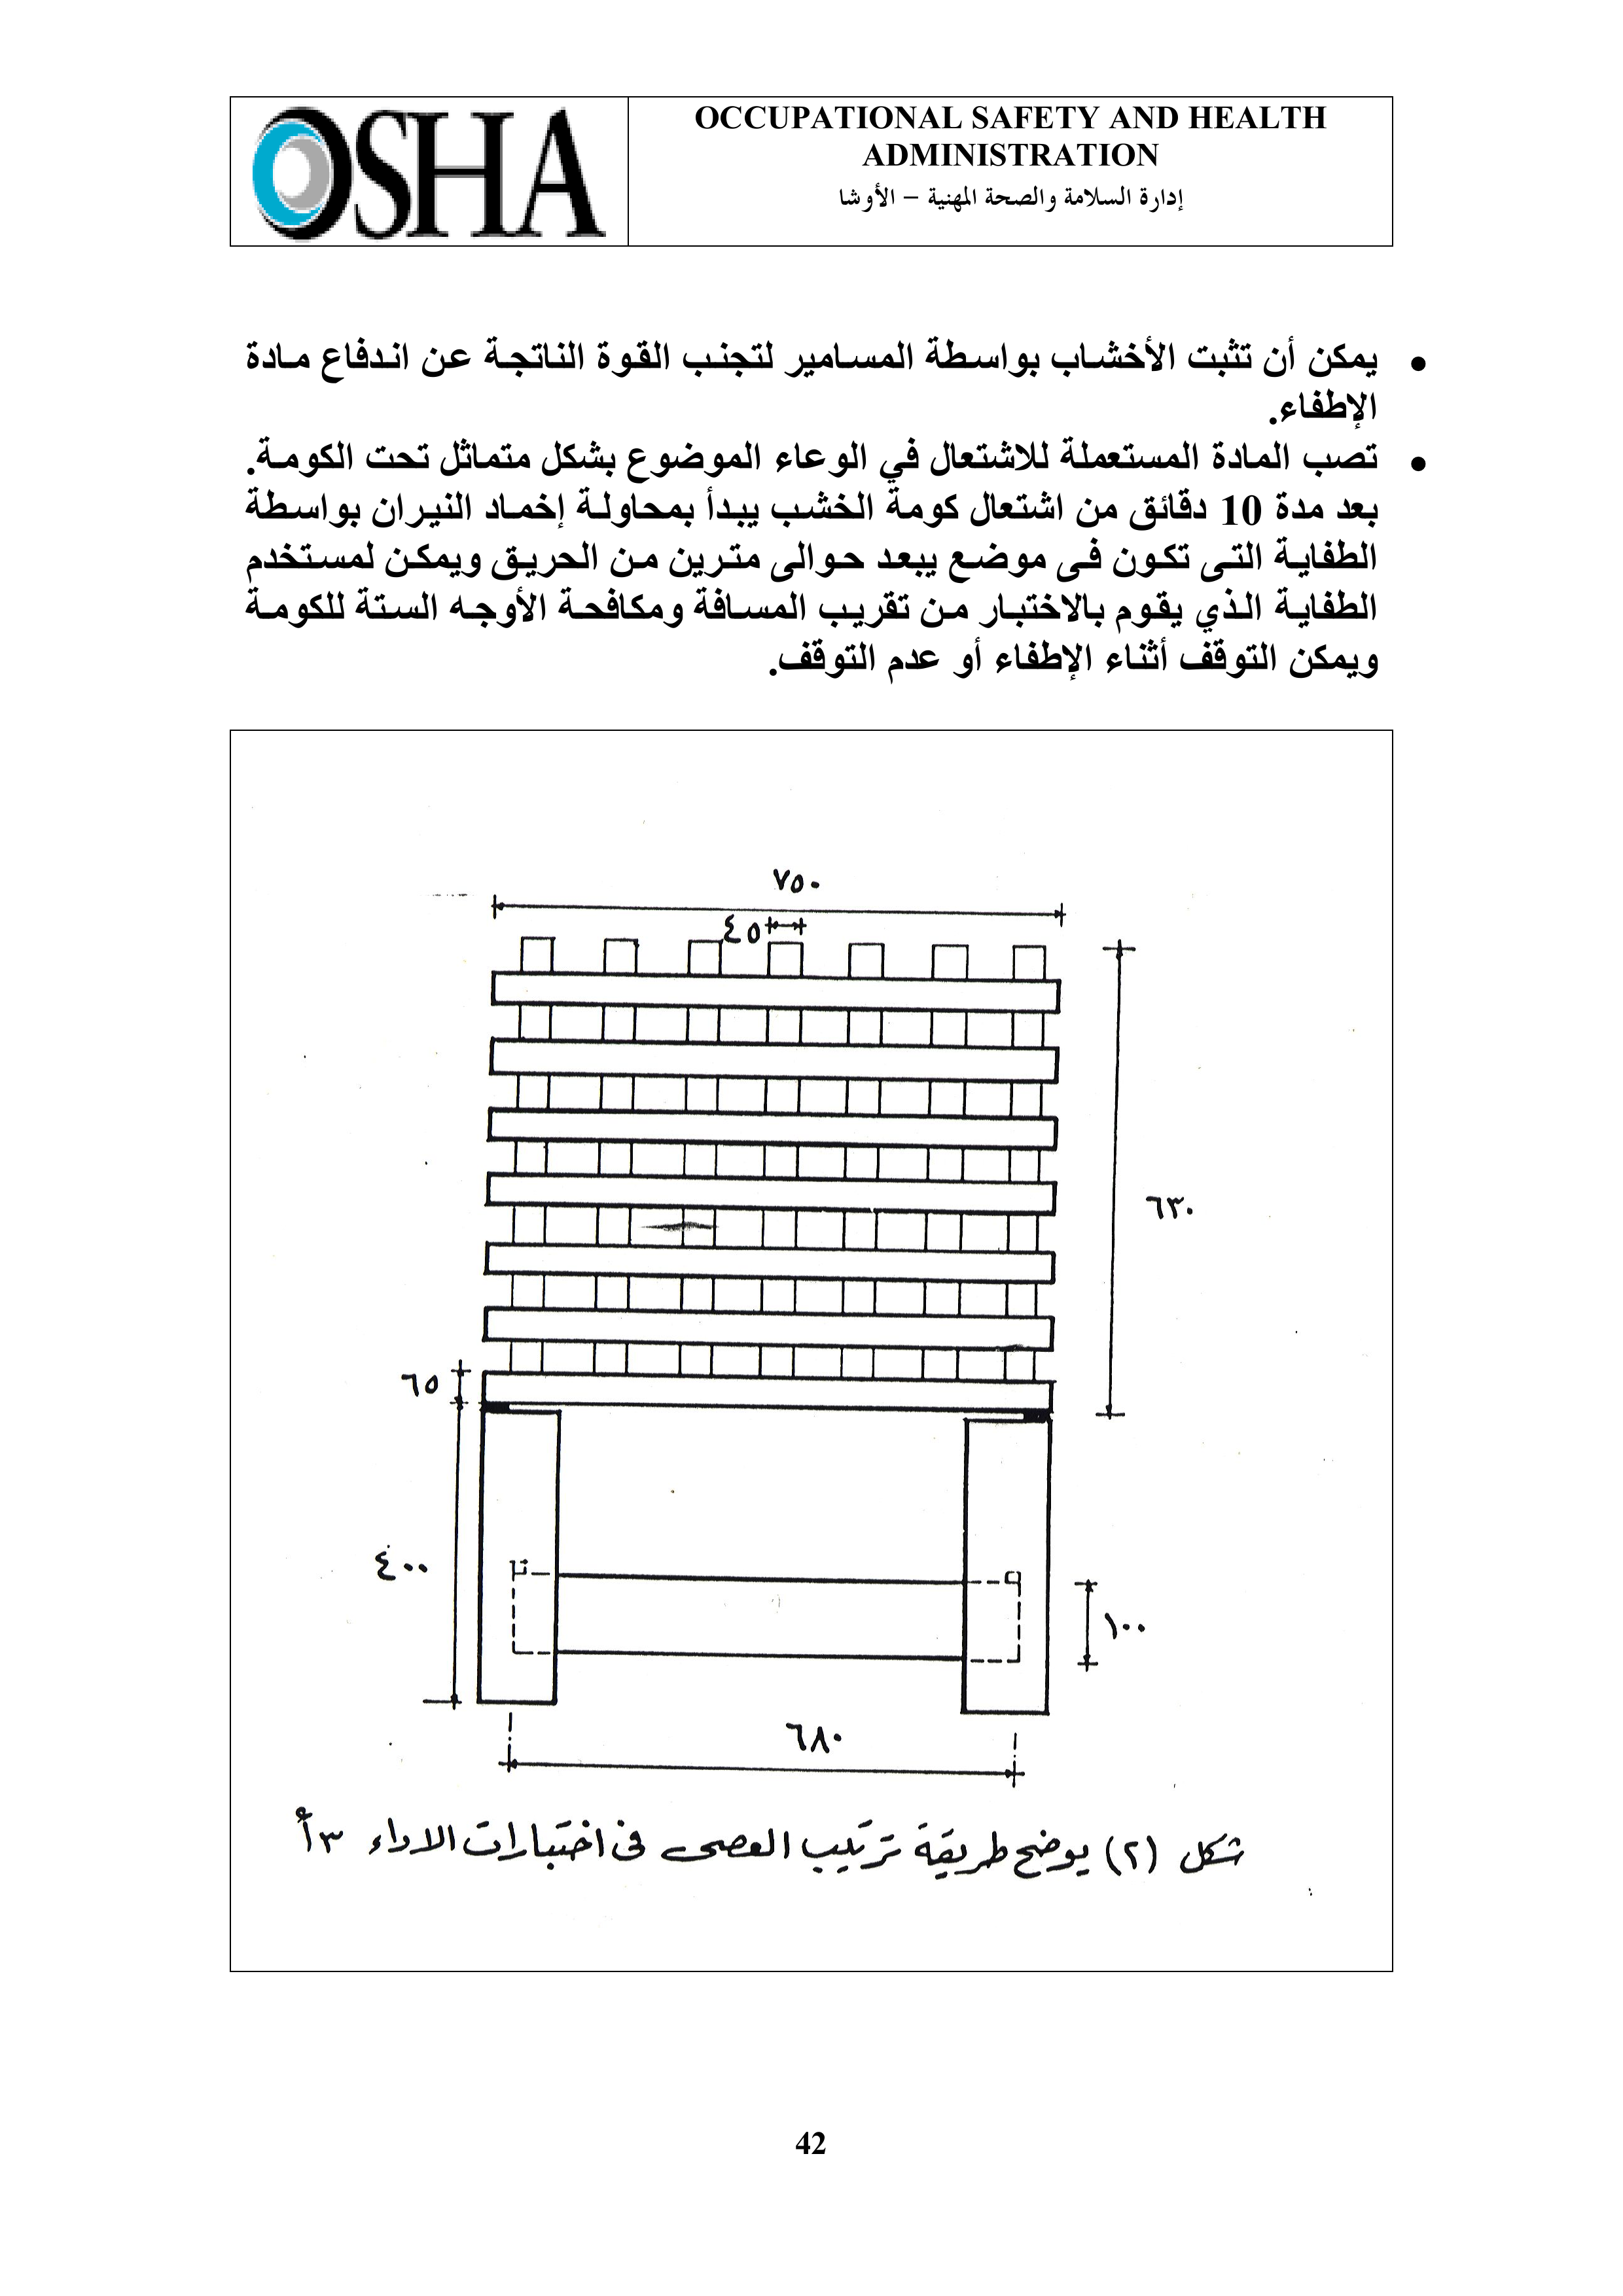 OSHA
OCCUPATIONAL SAFETY AND HEALTH
ADMINISTRATION
إدارة السلامة والصحة المهنية – الأوشا
• يمكن أن تثبت الأخشاب بواسطة المسامير لتجنب القوة الناتجة عن اندفاع مادة
الإطفاء.
• تصب المادة المستعملة للاشتعال في الوعاء الموضوع بشكل متماثل تحت الكومة.
بعد مدة 10 دقائق من اشتعال كومة الخشب يبدأ بمحاولة إخماد النيران بواسطة
الطفاية التى تكون فى موضع يبعد حوالى مترين من الحريق ويمكن لمستخدم
الطفاية الذي يقوم بالاختبار من تقريب المسافة ومكافحة الأوجه الستة للكومة
ويمكن التوقف أثناء الإطفاء أو عدم التوقف.
٧٥٠
٤٥
٦٣٠
٦٥
٤٠٠
١٠٠
٦٨٠
شكل (٢) يوضح طريقة ترتيب العصى فى اختبارات الاداء ٣أ
42